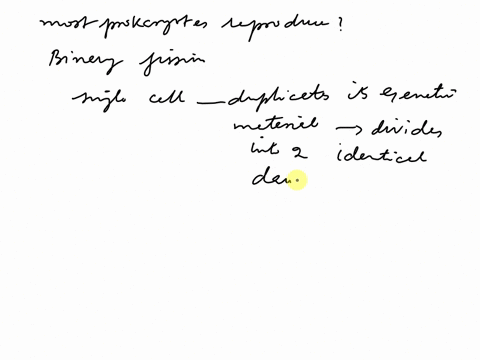 most prokaryotes reproduce?
Binary fission
single cell — duplicates its genetic
material → divides
into 2 identical
dau